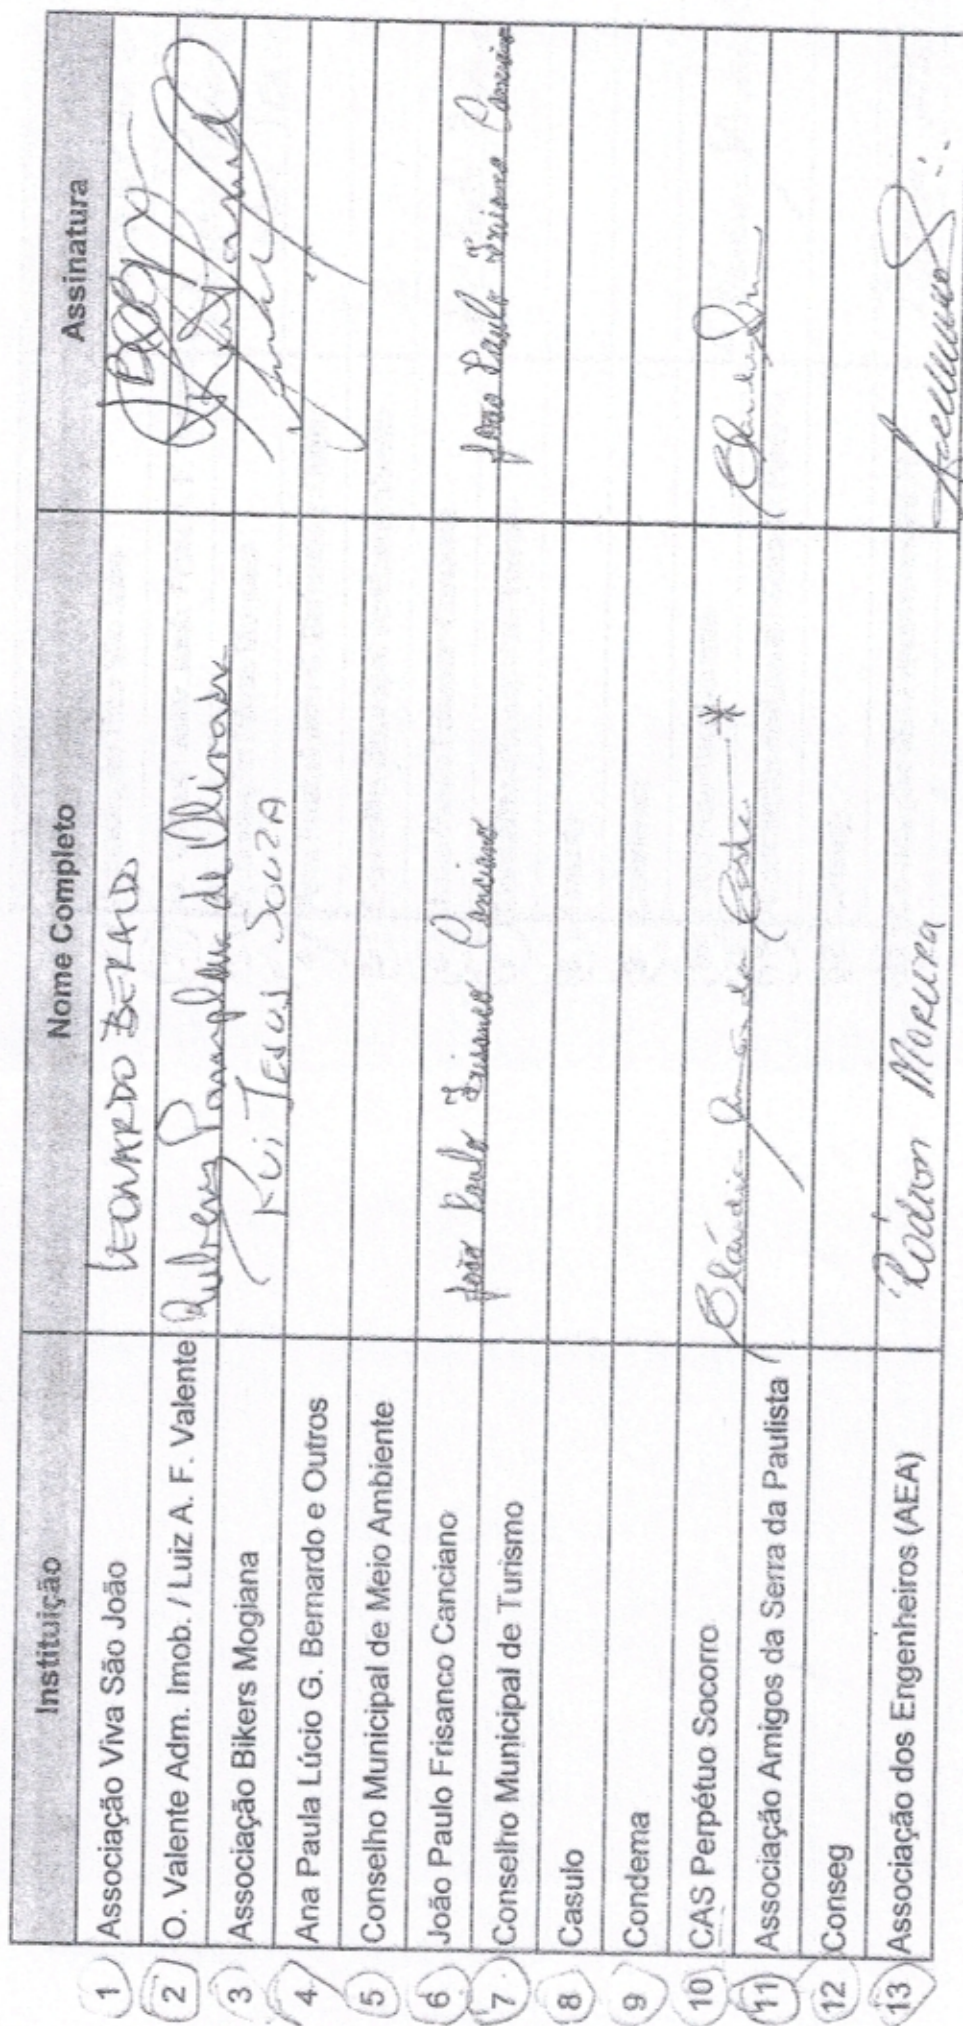 Instituição Nome Completo Assinatura
1 Associação Viva São João LEONARDO BERALDO
2 O. Valente Adm. Imob. / Luiz A. F. Valente Rubens Pamplona de Oliveira
3 Associação Bikers Mogiana RUI JESUS SOUZA
4 Ana Paula Lúcio G. Bernardo e Outros
5 Conselho Municipal de Meio Ambiente
6 João Paulo Frisanco Canciano João Paulo Frisanco Canciano João Paulo Frisanco Canciano
7 Conselho Municipal de Turismo
8 Casulo
9 Condema
10 CAS Perpétuo Socorro Cláudia da Costa *
11 Associação Amigos da Serra da Paulista
12 Conseg
13 Associação dos Engenheiros (AEA) Moreira